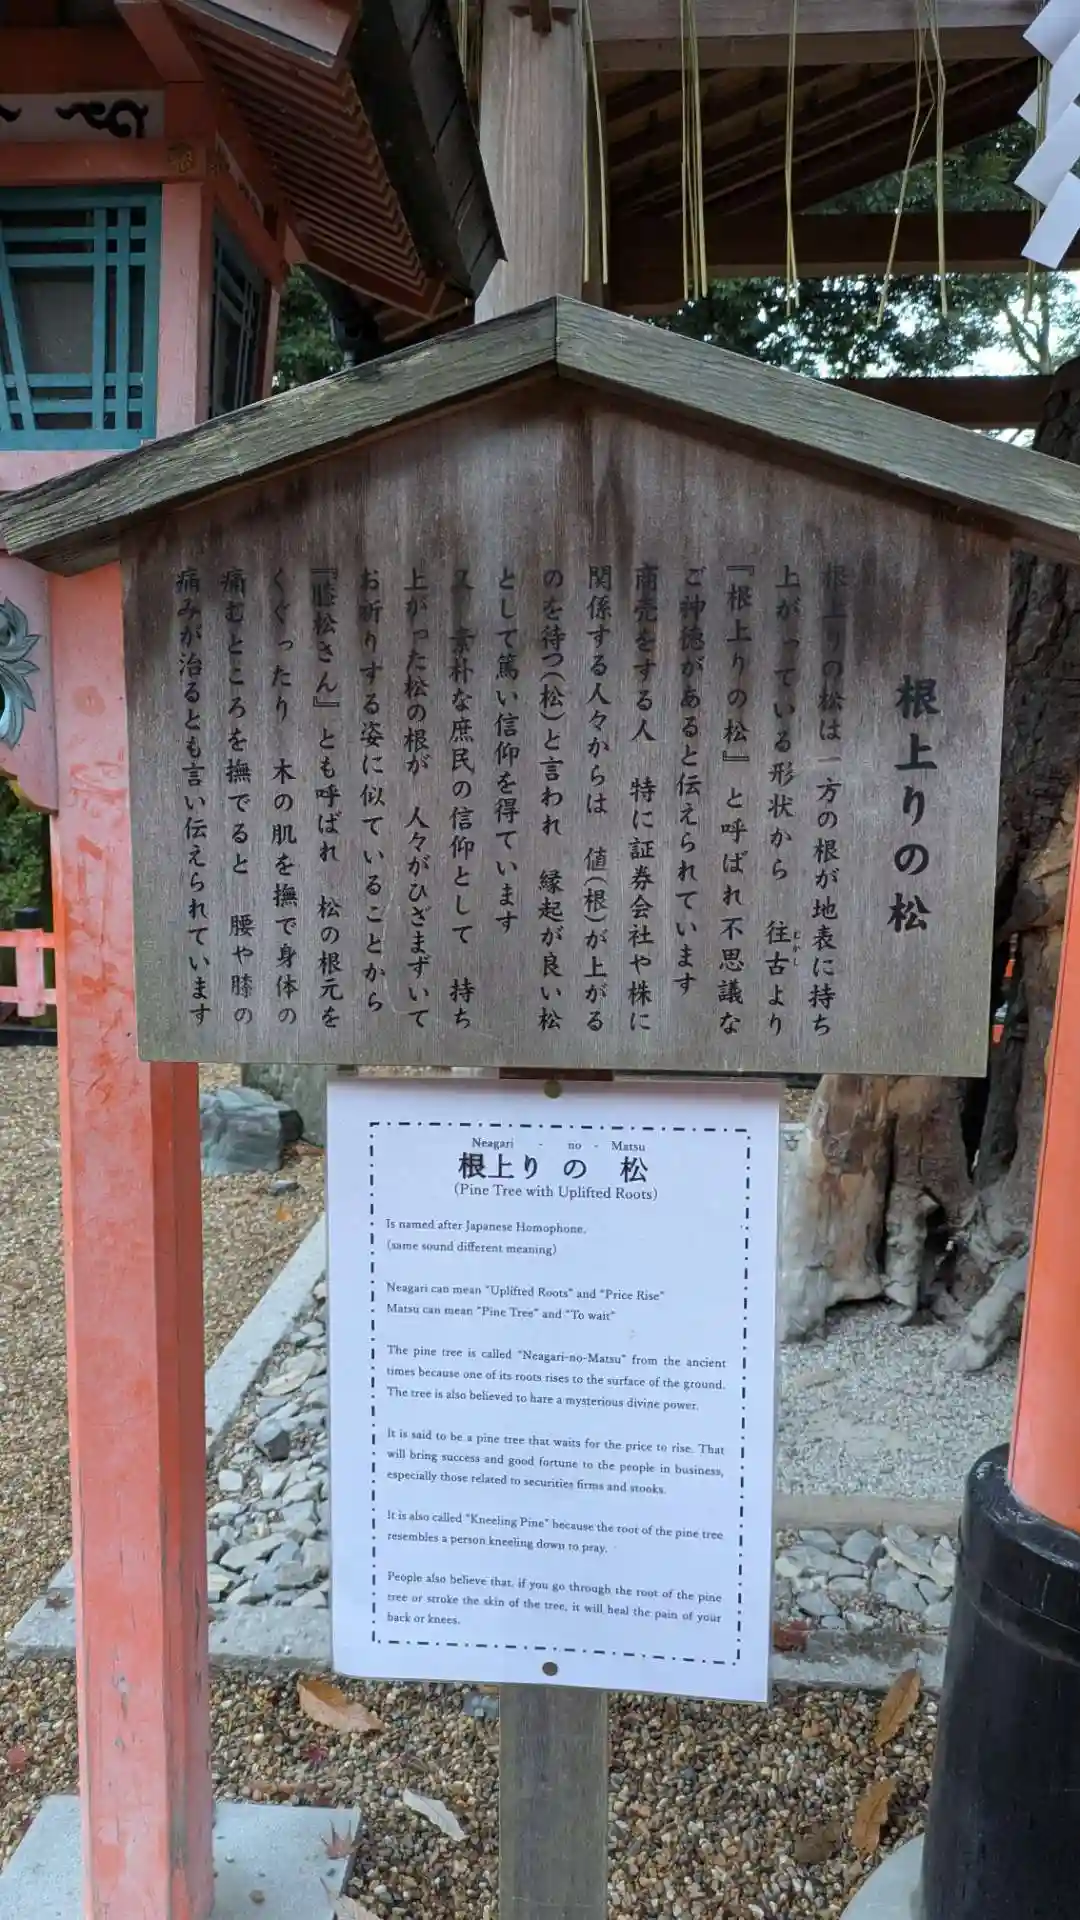 根上りの松
根上りの松は一方の根が地表に持ち
上がっている形状から　往古より
むかし
『根上りの松』と呼ばれ不思議な
ご神徳があると伝えられています
商売をする人　特に証券会社や株に
関係する人々からは　値(根)が上がる
のを待つ(松)と言われ　縁起が良い松
として篤い信仰を得ています
又　素朴な庶民の信仰として　持ち
上がった松の根が　人々がひざまずいて
お祈りする姿に似ていることから
『膝松さん』とも呼ばれ　松の根元を
くぐったり　木の肌を撫で身体の
痛むところを撫でると　腰や膝の
痛みが治るとも言い伝えられています
Neagari - no - Matsu
根上り の 松
(Pine Tree with Uplifted Roots)
Is named after Japanese Homophone.
(same sound different meaning)
Neagari can mean "Uplifted Roots" and "Price Rise"
Matsu can mean "Pine Tree" and "To wait"
The pine tree is called "Neagari-no-Matsu" from the ancient
times because one of its roots rises to the surface of the ground.
The tree is also believed to hare a mysterious divine power.
It is said to be a pine tree that waits for the price to rise. That
will bring success and good fortune to the people in business,
especially those related to securities firms and stooks.
It is also called "Kneeling Pine" because the root of the pine tree
resembles a person kneeling down to pray.
People also believe that, if you go through the root of the pine
tree or stroke the skin of the tree, it will heal the pain of your
back or knees.